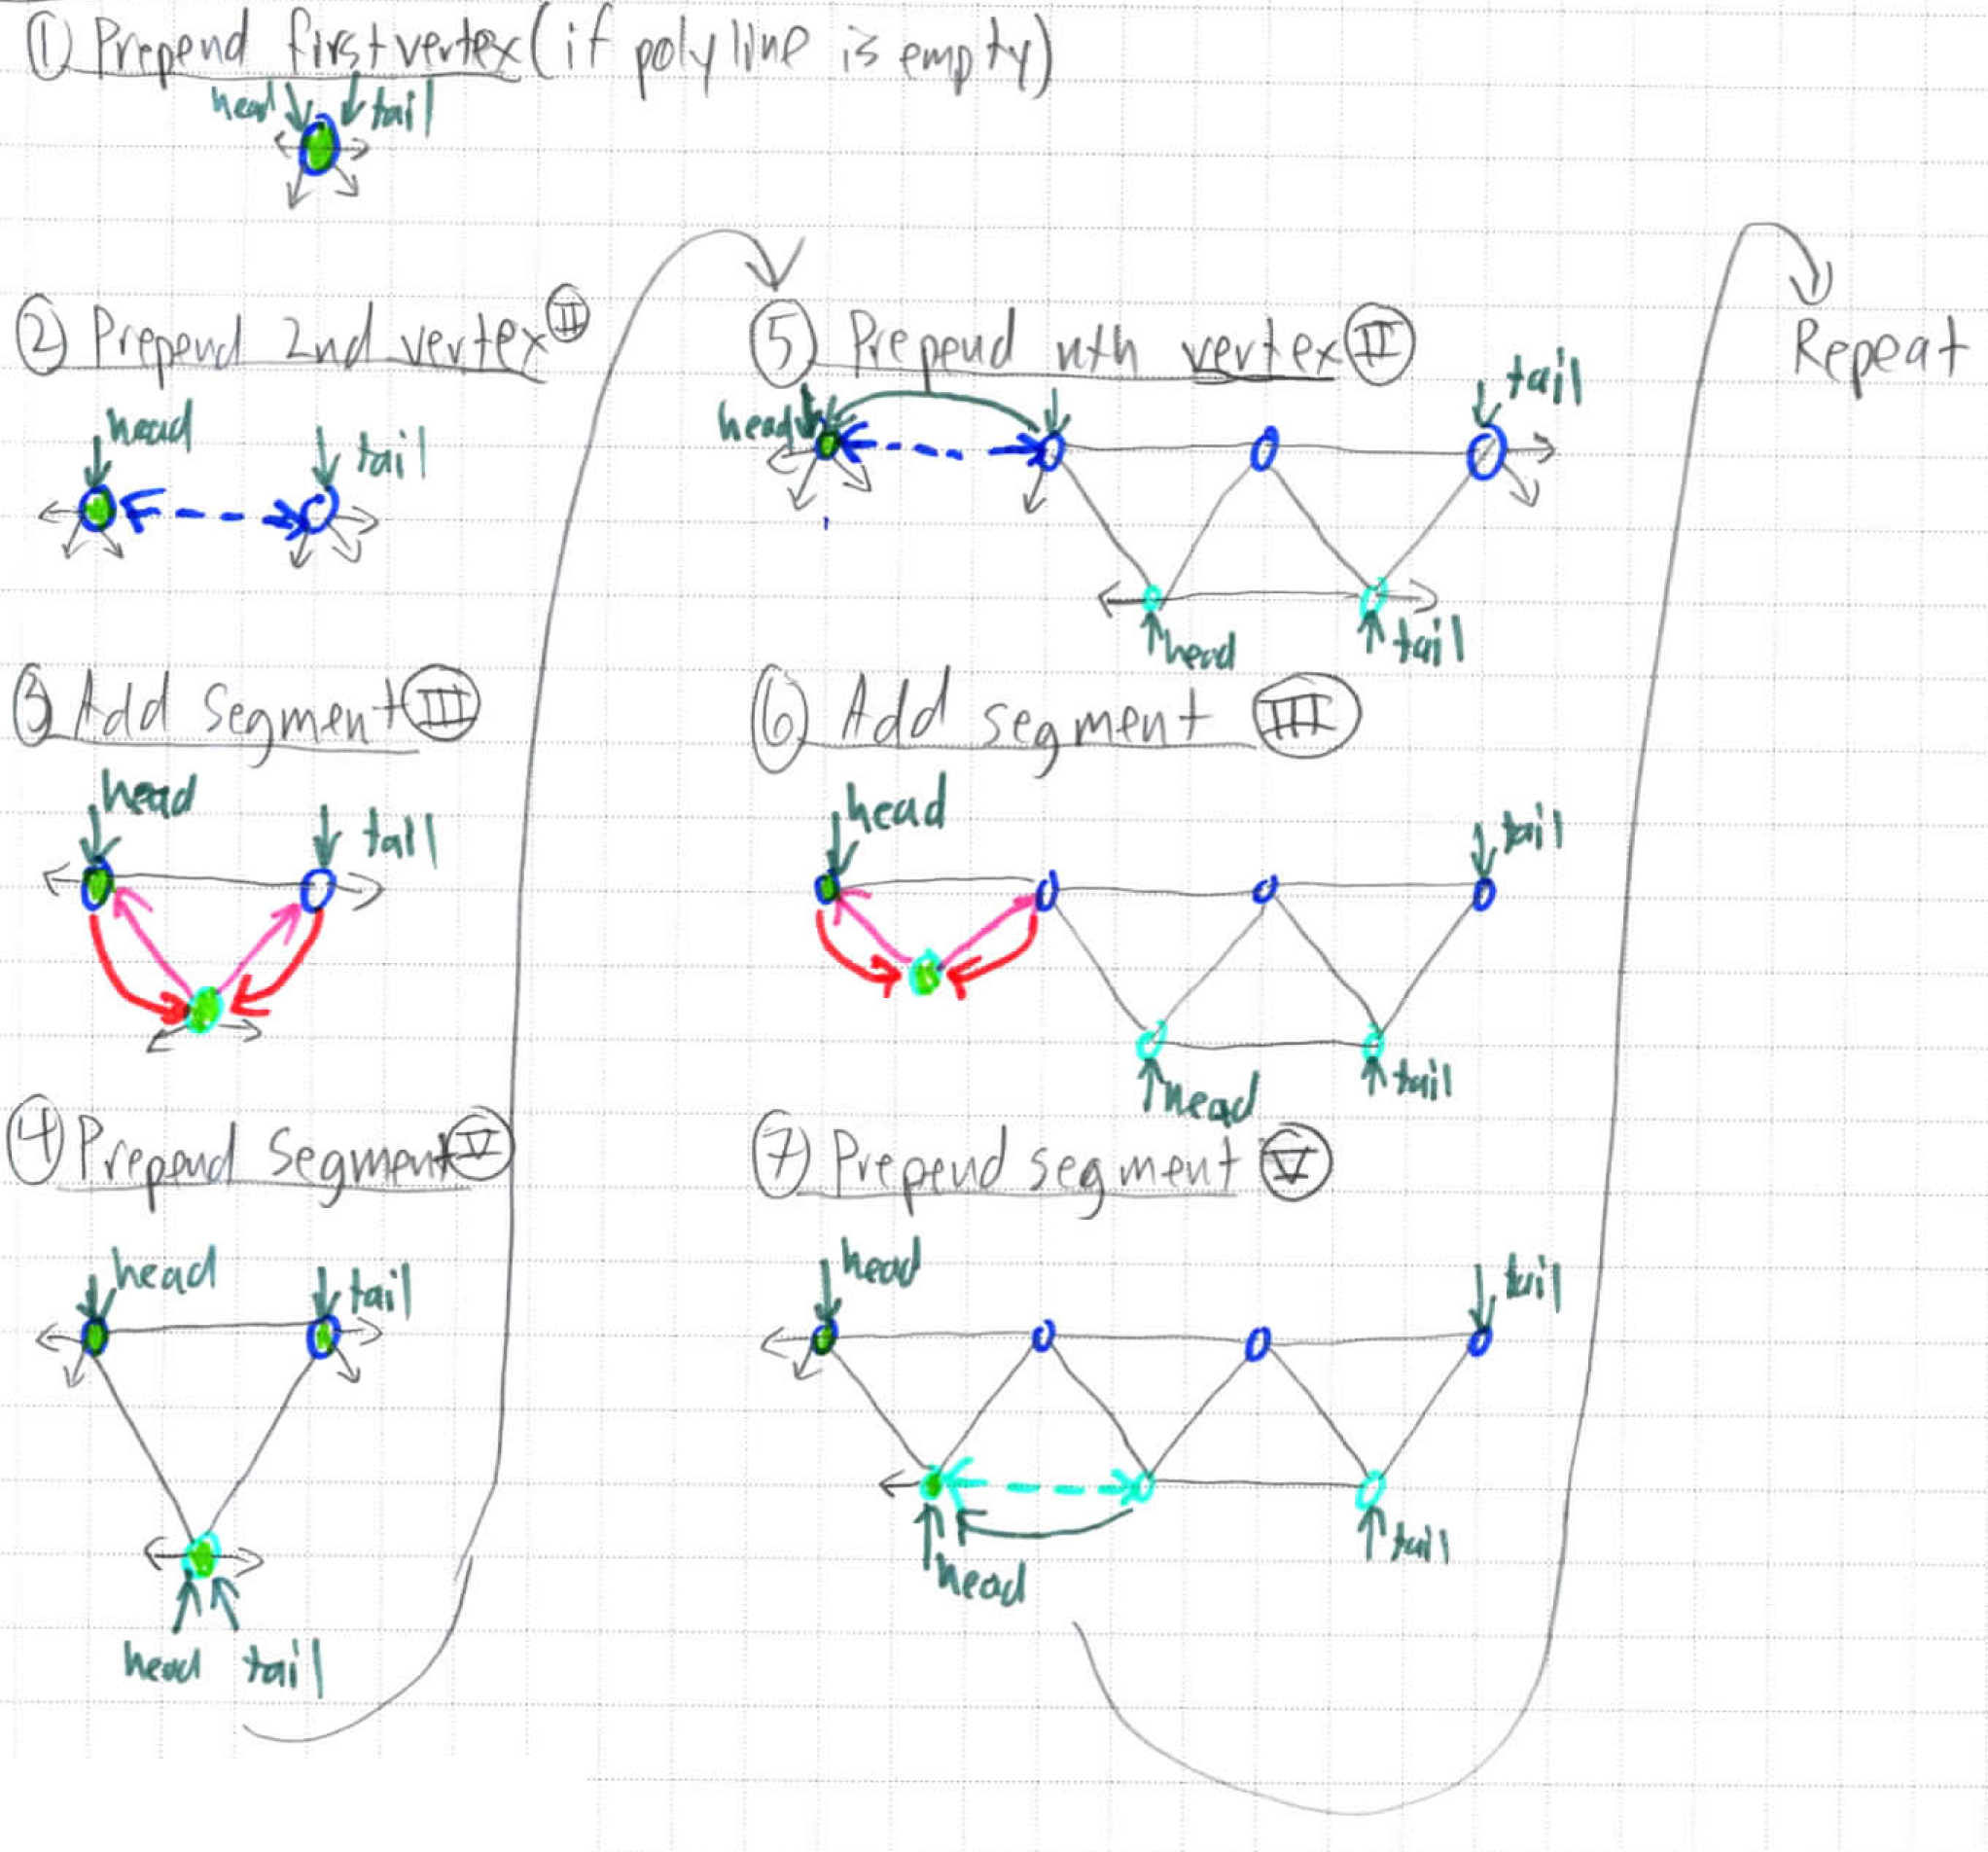 ① Prepend first vertex (if polyline is empty)
head tail
② Prepend 2nd vertex Ⅱ
head tail
③ Add segment Ⅲ
head tail
④ Prepend segment Ⅴ
head tail
head tail
⑤ Prepend nth vertex Ⅱ
head tail
head tail
⑥ Add segment Ⅲ
head tail
head tail
⑦ Prepend segment Ⅴ
head tail
head tail
Repeat